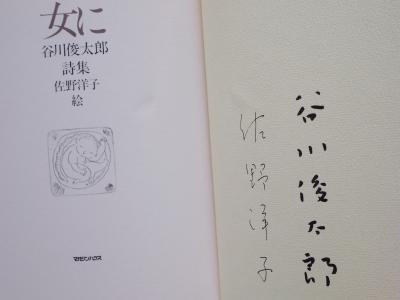 女に
谷川俊太郎
詩集
佐野洋子
絵
マガジンハウス
谷川俊太郎
佐野洋子